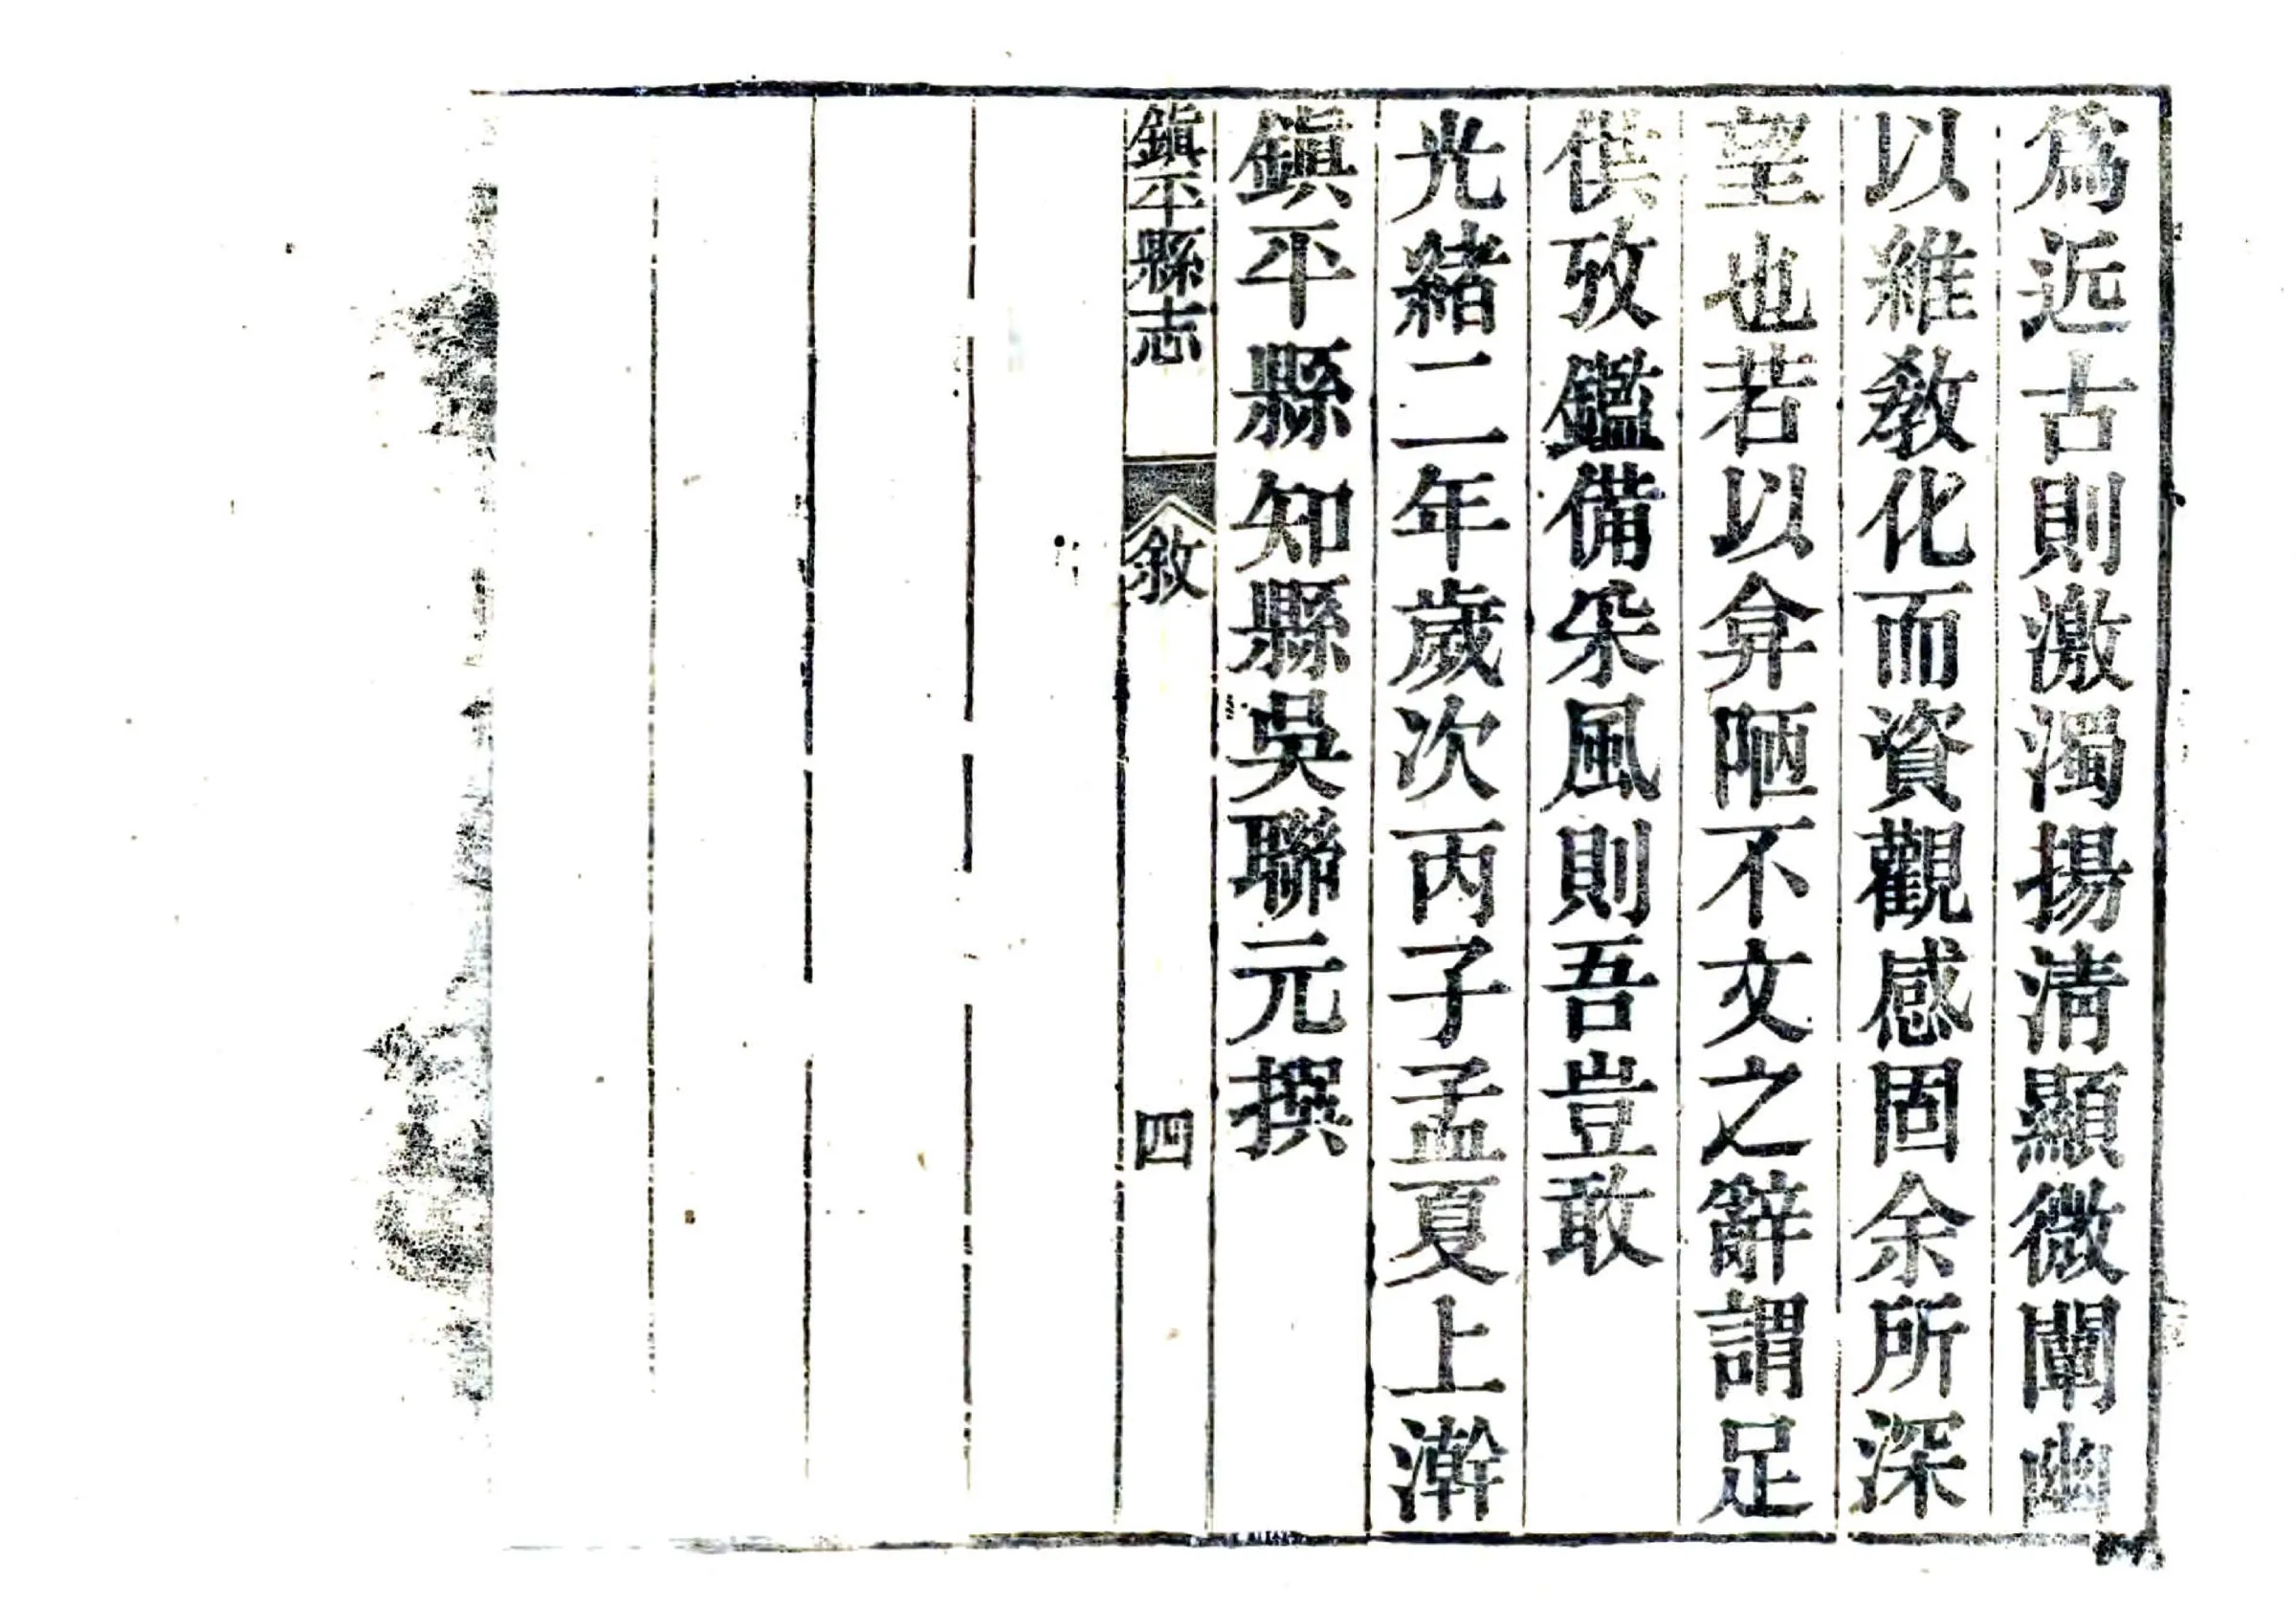 爲近古則激濁揚淸顯微闡幽
以維敎化而資觀感固余所深
望也若以弇陋不文之辭謂足
供攷鑑備采風則吾豈敢
光緖二年歲次丙子孟夏上澣
鎭平縣知縣吳聯元撰
鎭平縣志 敘 四